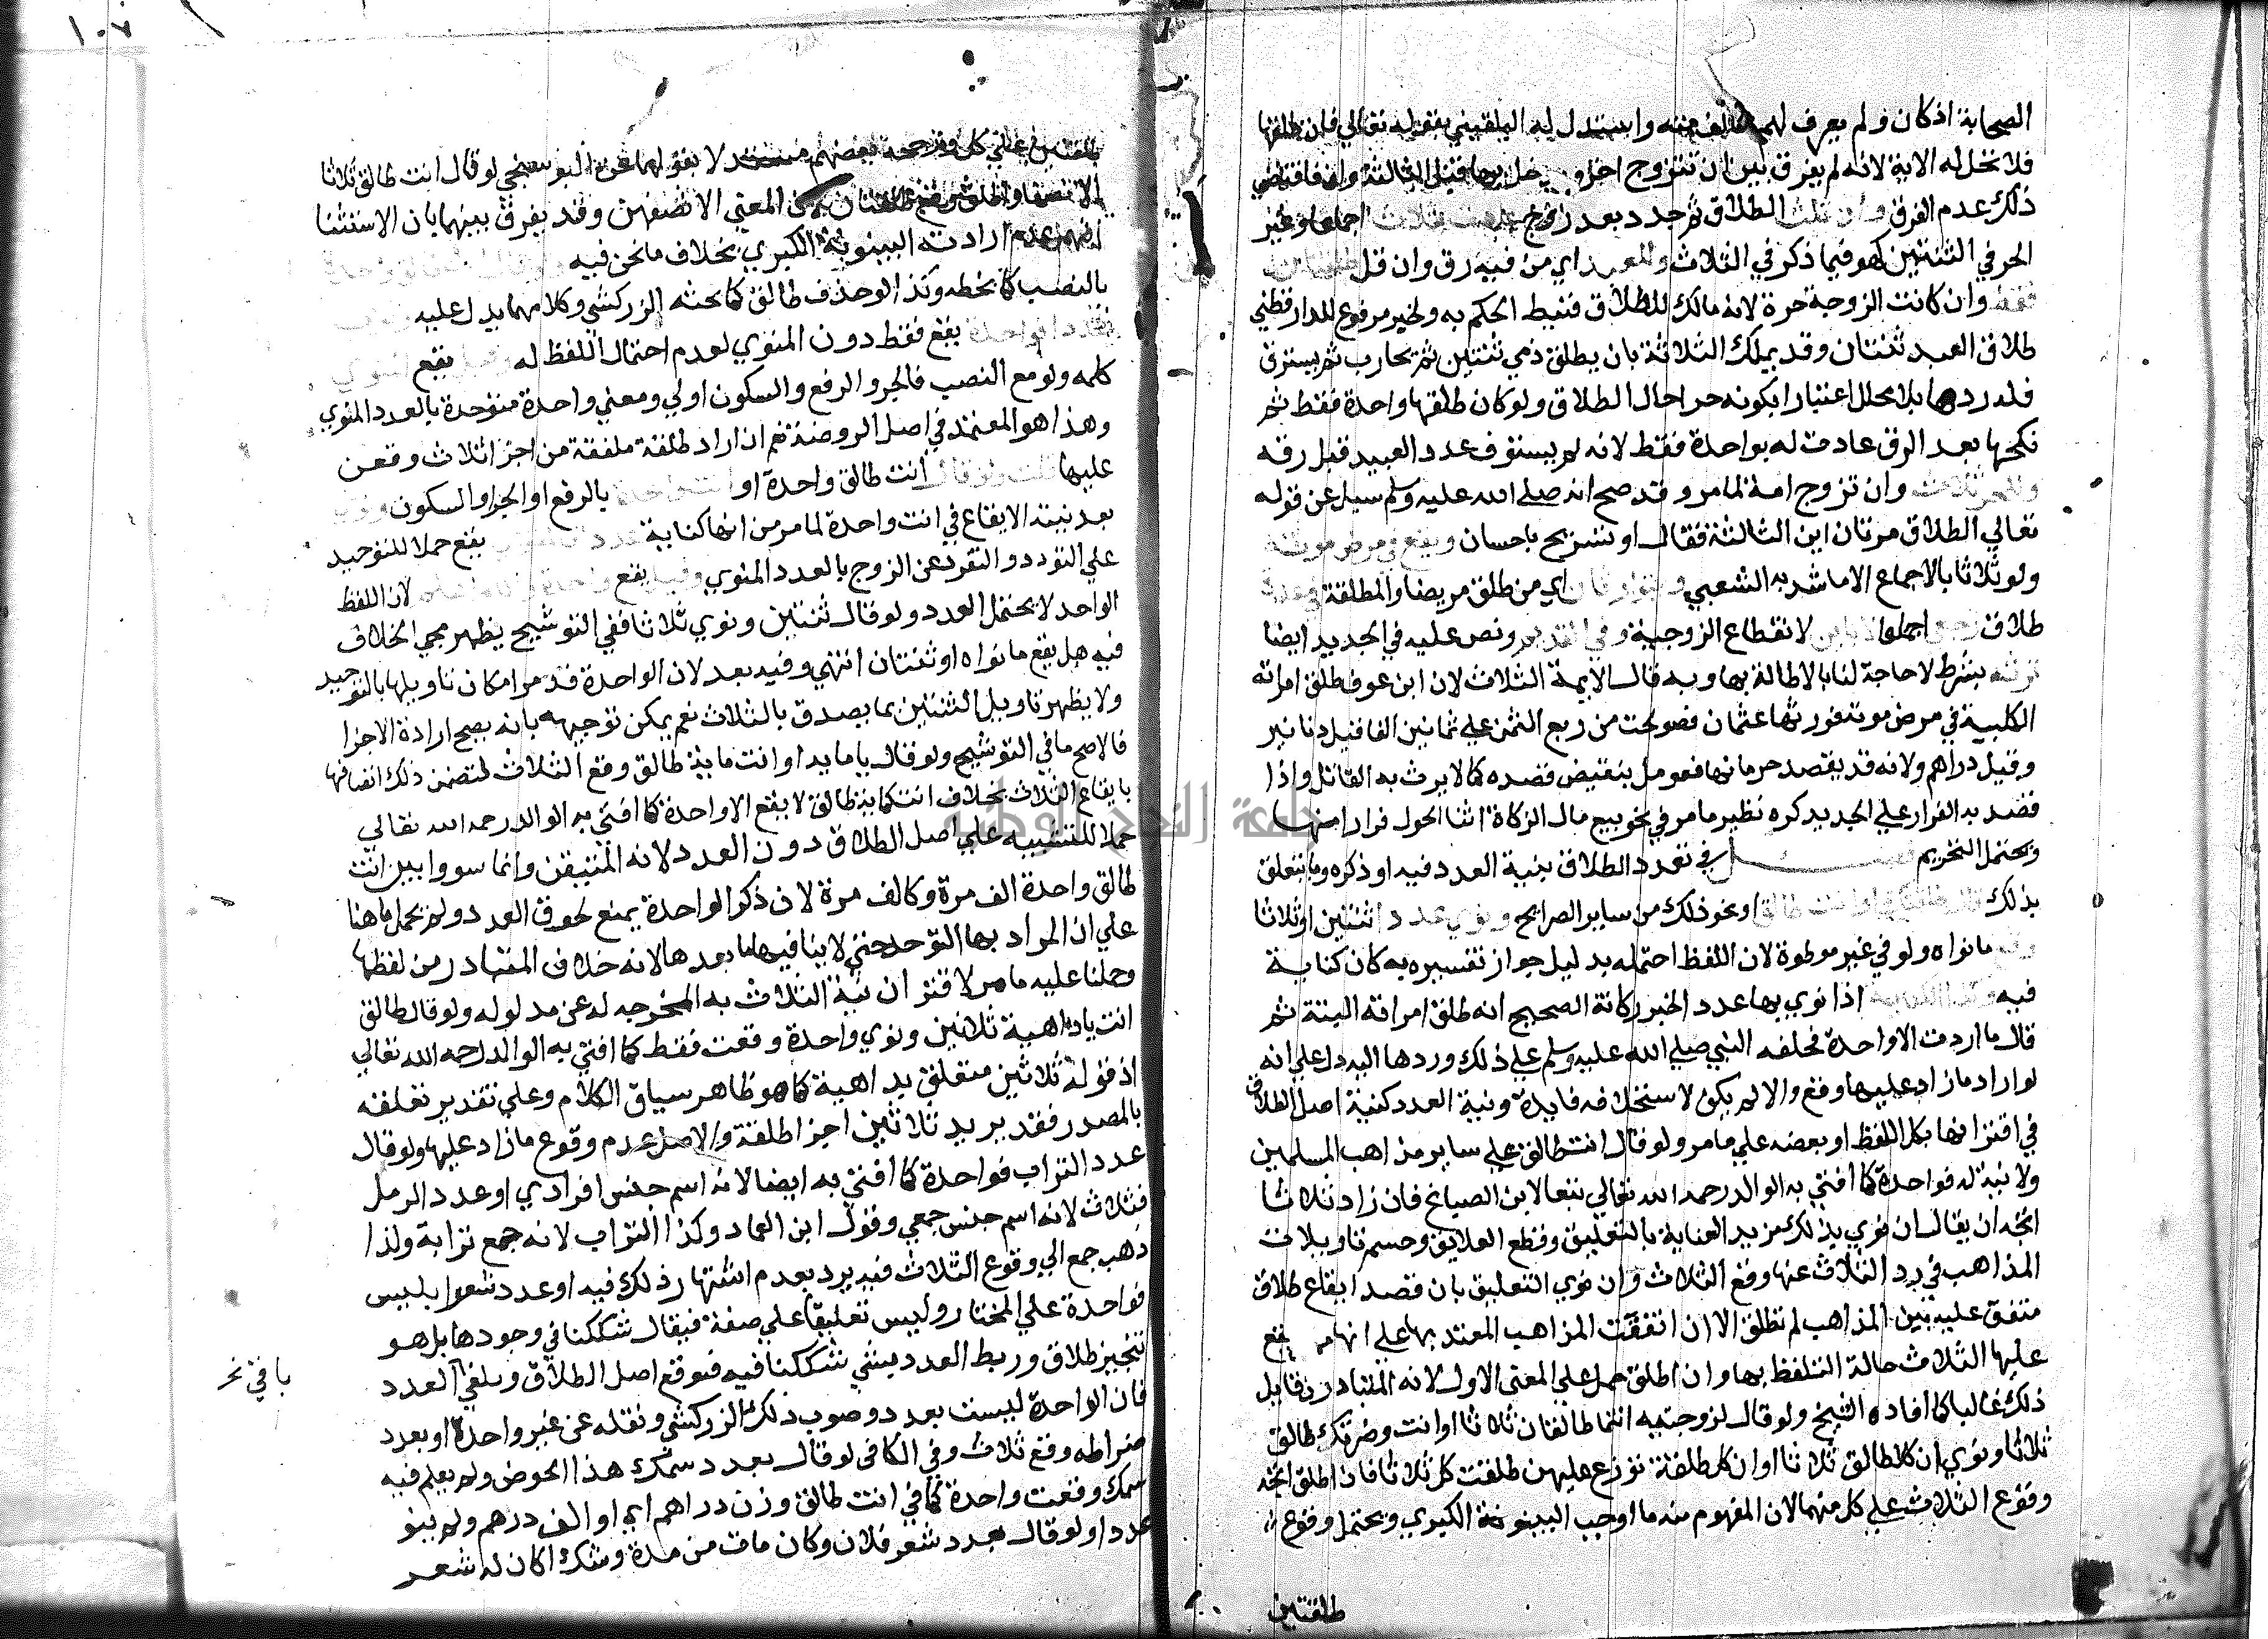 الصحابة اذ كان ولم يعرف لهم مخالف منهم واستدل له البلقيني بقوله تعالي فان طلقها
فلا تحل له الاية لانه لم يفرق بين ان تتزوج اخر ويدخل بها قبل الثالثة وان فاقتضي
ذلك عدم الفرق وان ثلث الطلاق ثم جدد بعد زوج عادت بثلاث اجماعا وغير
الحر في الثنتين كهو فيما ذكر في الثلاث وللعبد اي من فيه رق وان قل طلقتان
فقط وان كانت الزوجة حرة لانه مالك للطلاق فنيط الحكم به ولخبر مرفوع للدارقطني
طلاق العبد ثنتان وقد يملك الثلاثة بان يطلق ذمي ثنتين ثم يحارب ثم يسترق
فله ردها بلا محلل اعتبارا بكونه حرا حال الطلاق ولو كان طلقها واحدة فقط ثم
نكحها بعد الرق عادت له بواحدة فقط لانه لم يستوف عدد العبيد قبل رقه
وللحر ثلاث وان تزوج امة لما مر وقد صح انه صلي الله عليه وسلم سيل عن قوله
تعالي الطلاق مرتان اين الثالثة فقال او تسريح باحسان ويقع في مرض موته
ولو ثلاثا بالاجماع الا ما شذ به الشعبي ويتوارثان اي من طلق مريضا والمطلقة في عدة
طلاق رجعي اجماعا لا باين لانقطاع الزوجية وفي القديم ونص عليه في الجديد ايضا
ترثه بشرط لا حاجة لنا بالاطالة بها وبه قال الايمة الثلاث لان ابن عوف طلق امراته
الكلبية في مرض موته فورثها عثمان فصولحت من ربع الثمن علي ثمانين الفا قيل دنانير
وقيل دراهم ولانه قد يقصد حرمانها فعومل بنقيض قصده كما لا يرث به القاتل واذا
قصد به الفرار علي الجديد كره نظير ما مر في نحو بيع مال الزكاة اثنا الحول فرارا منها
ويحتمل التحريم فصل في تعدد الطلاق بنية العدد فيه او ذكره وما يتعلق
بذلك قال طلقتك او انت طالق او نحو ذلك من ساير الصرايح ونوي عددا ثنتين او ثلاثا
وقع ما نواه ولو في غير موطوة لان اللفظ احتمله بدليل جواز تفسيره به كان كناية
فيه وكذا الكناية اذا نوي بها عدد الخبر ركانة الصحيح انه طلق امراته البتة ثم
قال ما اردت الا واحدة فحلفه النبي صلي الله عليه وسلم علي ذلك وردها اليه دل علي انه
لو اراد ما زاد عليها وقع والا لم يكن لاستحلافه فايدة ونية العدد كنية اصل الطلاق
في اقترانها بكل اللفظ او بعضه علي ما مر ولو قال انت طالق علي ساير مذاهب المسلمين
ولا نية له فواحدة كما افتي به الوالد رحمه الله تعالي تبعا لابن الصباغ فان زاد ثلاثا
اتجه ان يقال ان نوي بذلك مزيد العناية بالتعليق وقطع العلايق وحسم تاويلات
المذاهب في رد الثلاث عنها وقع الثلاث وان نوي التعليق بان قصد ايقاع طلاق
متفق عليه بين المذاهب لم تطلق الا ان اتفقت المذاهب المعتد بها علي انها ممن يقع
عليها الثلاث حالة التلفظ بها وان اطلق حمل علي المعني الاول لانه المتبادر من قايل
ذلك غالبا كما افاده الشيخ ولو قال لزوجتيه انتما طالقتان ثلاثا او انت وضرتك طالق
ثلاثا ونوي ان كلا طالق ثلاثا او ان كل طلقة توزع عليهن طلقت كل ثلاثا فان اطلق اتجه
وقوع الثلاث علي كل منهما لان المفهوم منه ما اوجب البينونة الكبري ويحتمل وقوع
طلقتين
١٠٧
علي كل ورجحه بعضهم لو قال انت طالق ثلاثا
الا نصفا المعني الا نصفهن وقد يفرق بينهما بان الاستثنا
ارادته البينونة الكبري بخلاف ما نحن فيه
بالنصب كما بخطه وكذا لو حذف طالق كما بحثه الزركشي وكلامهما يدل عليه
يقع فقط دون المنوي لعدم احتمال اللفظ له يقع
كلمه ولو مع النصب فالجر والرفع والسكون اولي ومعني واحدة متوحدة بالعدد المنوي
وهذا هو المعتمد في اصل الروضة نعم ان اراد طلقة ملفقة من اجزا ثلاث وقعن
عليها قلت ولو قال انت طالق واحدة او انت واحدة بالرفع او الجر او السكون
بعد نية الايقاع في انت واحدة لما مر من انها كناية يقع حملا للتوحيد
علي التوحد والتفرد عن الزوج بالعدد المنوي وقيل يقع واحدة لان اللفظ
الواحد لا يحتمل العدد ولو قال ثنتين ونوي ثلاثا ففي التوشيح يظهر مجي الخلاف
فيه هل يقع ما نواه او ثنتان انتهي وفيه بعد لان الواحدة قد مر امكان تاويلها بالتوحيد
ولا يظهر تاويل الثنتين بما يصدق بالثلاث نعم يمكن توجيهه بانه يصح ارادة الاجزا
فالاصح ما في التوشيح ولو قال يا مايه او انت ماية طالق وقع الثلاث لتضمن ذلك اتصافها
بايقاع الثلاث بخلاف انت كماية طالق لا يقع الا واحدة كما افتي به الوالد رحمه الله تعالي
حملا للتشبيه علي اصل الطلاق دون العدد لانه المتيقن وانما سووا بين انت
طالق واحدة الف مرة وكالف مرة لان ذكر الواحدة يمنع لحوق العدد ولم يحمل ما هنا
علي ان المراد بها التوحد حتي لا ينافيها ما بعدها لانه خلاف المتبادر من لفظها
وحملنا عليه ما مر لاقتران نية الثلاث به المخرجه له عن مدلوله ولو قال طالق
انت يا داهية ثلاثين ونوي واحدة وقعت فقط كما افتي به الوالد رحمه الله تعالي
اذ قوله ثلاثين متعلق بداهية كما هو ظاهر سياق الكلام وعلي تقدير تعلقه
بالمصدر فقد يريد ثلاثين اجزا طلقة والاصل عدم وقوع ما زاد عليها ولو قال
عدد التراب فواحدة كما افتي به ايضا لانه اسم جنس افرادي او عدد الرمل
فثلاث لانه اسم جنس جمعي وقول ابن العماد وكذا التراب لانه جمع ترابة ولذا
ذهب جمع الي وقوع الثلاث فيه يرد بعدم اشتهار ذلك فيه او عدد شعر ابليس
فواحدة علي المختار وليس تعليقا علي صفة فيقال شككنا في وجودها بل هو
تنجيز طلاق وربط العدد بشي شككنا فيه فنوقع اصل الطلاق ونلغي العدد
فان الواحدة ليست بعدد وصوب ذلك الزركشي ونقله عن غير واحدة او بعدد
ضراطه وقع ثلاث وفي الكافي لو قال بعدد سمك هذا الحوض ولم يعلم فيه
سمك وقعت واحدة كما في انت طالق وزن دراهم اي او الف درهم ولم ينو
عددا ولو قال بعدد شعر فلان وكان مات من مدة وشك اكان له شعر